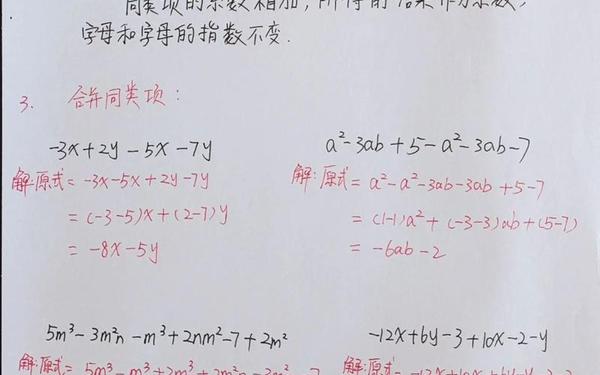 同类项的系数相加，所得的结果作为系数，
字母和字母的指数不变.
3. 合并同类项：
-3x+2y-5x-7y
解:原式=-3x-5x+2y-7y
=(-3-5)x+(2-7)y
=-8x-5y
a²-3ab+5-a²-3ab-7
解:原式=a²-a²-3ab-3ab+5-7
=(1-1)a²+(-3-3)ab+(5-7)
=-6ab-2
5m³-3m²n-m³+2nm²-7+2m²
解:原式=5m³-m³+2m³+2m²n-3m²n-7
-12x+6y-3+10x-2-y
解:原式=-12x+10x+6y-y-3-2